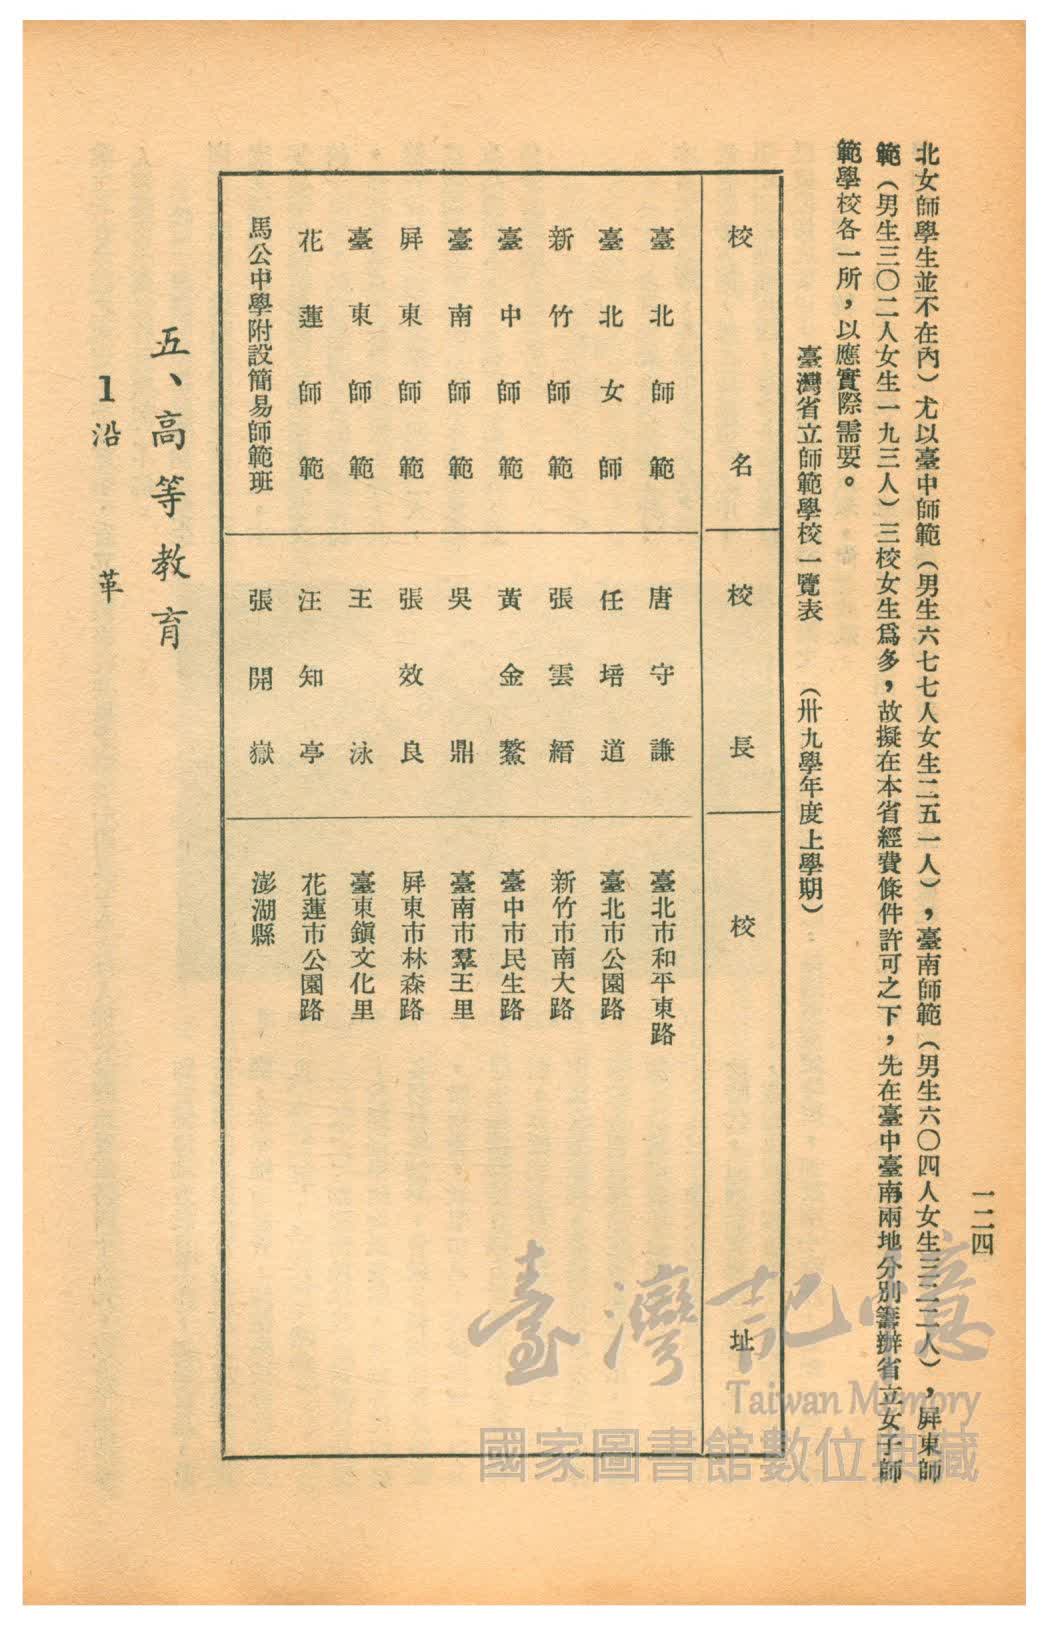 一二四
北女師學生並不在內）尤以臺中師範（男生六七七人女生二五一人），臺南師範（男生六〇四人女生三三二人），屏東師
範（男生三〇二人女生一九三人）三校女生爲多，故擬在本省經費條件許可之下，先在臺中臺南兩地分別籌辦省立女子師
範學校各一所，以應實際需要。
臺灣省立師範學校一覽表　（卅九學年度上學期）
校名　校長　校址
臺北師範　唐守謙　臺北市和平東路
臺北女師　任培道　臺北市公園路
新竹師範　張雲縉　新竹市南大路
臺中師範　黃金鰲　臺中市民生路
臺南師範　吳鼎　臺南市羣王里
屏東師範　張效良　屏東市林森路
臺東師範　王泳　臺東鎭文化里
花蓮師範　汪知亭　花蓮市公園路
馬公中學附設簡易師範班　張開嶽　澎湖縣
五、高等教育
1 沿革
臺灣記憶
Taiwan Memory
國家圖書館數位典藏